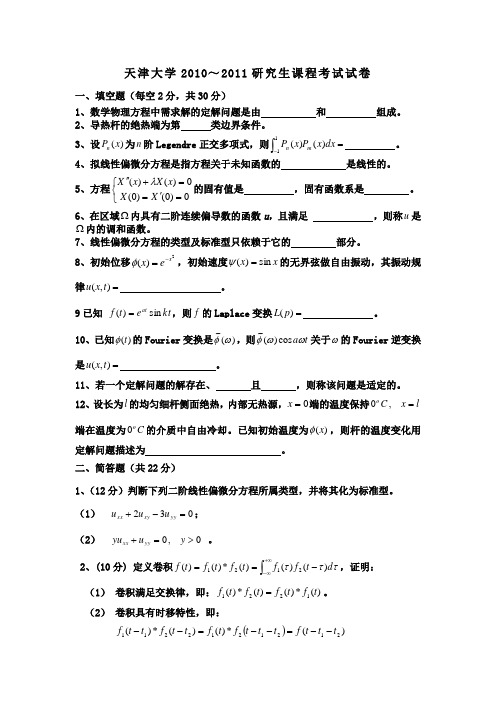 天津大学 2010～2011 研究生课程考试试卷
一、填空题（每空 2 分，共 30 分）
1、数学物理方程中需求解的定解问题是由 ______ 和 ______ 组成。
2、导热杆的绝热端为第 ______ 类边界条件。
3、设 P_n(x) 为 n 阶 Legendre 正交多项式，则 ∫_{-1}^{1} P_n(x)P_m(x)dx = ______ 。
4、拟线性偏微分方程是指方程关于未知函数的 ______ 是线性的。
5、方程 { X″(x) + λX(x) = 0
X(0) = X′(0) = 0 的固有值是 ______ ，固有函数系是 ______ 。
6、在区域 Ω 内具有二阶连续偏导数的函数 u，且满足 ______ ，则称 u 是
Ω 内的调和函数。
7、线性偏微分方程的类型及标准型只依赖于它的 ______ 部分。
8、初始位移 φ(x) = e^{-x^2}，初始速度 ψ(x) = sin x 的无界弦做自由振动，其振动规
律 u(x,t) = ______ 。
9 已知 f(t) = e^{at} sin kt，则 f 的 Laplace 变换 L(p) = ______ 。
10、已知 φ(t) 的 Fourier 变换是 φ̄(ω)，则 φ̄(ω)cos aωt 关于 ω 的 Fourier 逆变换
是 u(x,t) = ______ 。
11、若一个定解问题的解存在、 ______ 且 ______ ，则称该问题是适定的。
12、设长为 l 的均匀细杆侧面绝热，内部无热源，x = 0 端的温度保持 0°C， x = l
端在温度为 0°C 的介质中自由冷却。已知初始温度为 φ(x)，则杆的温度变化用
定解问题描述为 ______ 。
二、简答题（共 22 分）
1、（12 分）判断下列二阶线性偏微分方程所属类型，并将其化为标准型。
（1） u_{xx} + 2u_{xy} − 3u_{yy} = 0；
（2） yu_{xx} + u_{yy} = 0, y > 0 。
2、（10 分）定义卷积 f(t) = f_1(t)*f_2(t) = ∫_{-∞}^{+∞} f_1(τ)f_2(t−τ)dτ，证明：
（1） 卷积满足交换律，即：f_1(t)*f_2(t) = f_2(t)*f_1(t)。
（2） 卷积具有时移特性，即：
f_1(t−t_1)*f_2(t−t_2) = f_1(t)*f_2(t−t_1−t_2) = f(t−t_1−t_2)